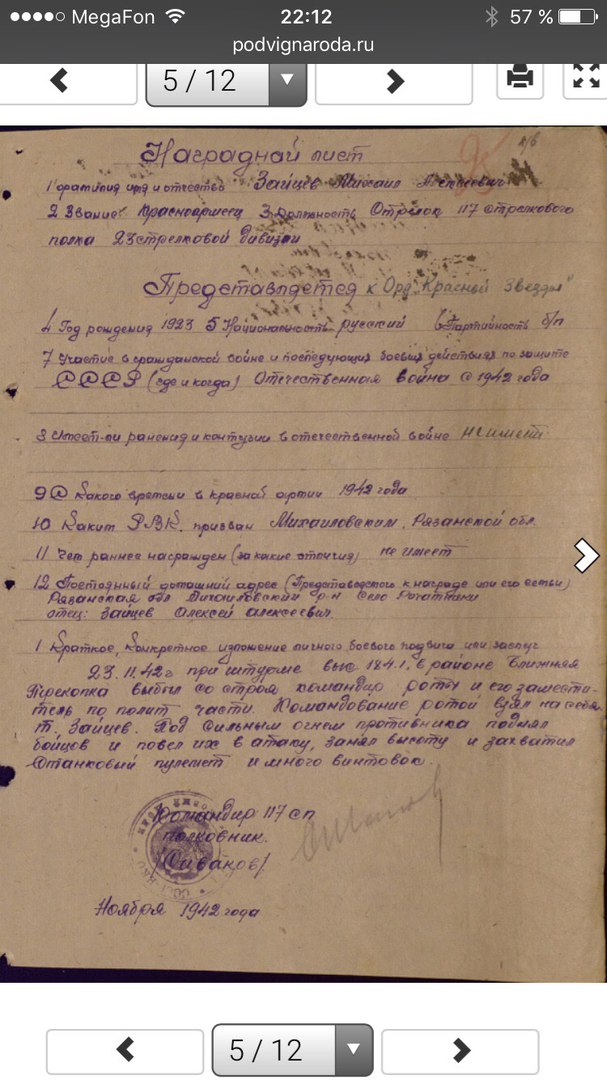 MegaFon 22:12 57 %
podvignaroda.ru
5 / 12
Наградной лист
1 фамилия имя и отчество Зайцев Михаил Алексеевич
2 Звание Красноармеец 3 Должность Стрелок 117 стрелкового
полка 23 стрелковой дивизии
Представляется к Орд. "Красной Звезды"
4 Год рождения 1923 5 Национальность русский 6 Партийность б/п
7 Участие в гражданской войне и последующих боевых действиях по защите
СССР (где и когда) Отечественная война с 1942 года
8 Имеет-ли ранения и контузии в отечественной войне не имеет
9 С какого времени в красной армии 1942 года
10 Каким РВК призван Михайловским, Рязанской обл.
11 Чем раннее награжден (за какие отличия) не имеет
12 Постоянный домашний адрес (Представляемого к награде или его семьи)
Рязанская обл Михайловский р-н село
отец: Зайцев Алексей Алексеевич.
1 Краткое, конкретное изложение личного боевого подвига или заслуг
23.11.42г при штурме выс 124.1. в районе Ближняя
Перекопка выбыл со строя командир роты и его замести-
тель по полит части. Командование ротой взял на себя
т. Зайцев. Под сильным огнем противника поднял
бойцов и повел их в атаку, занял высоту и захватил
Станковый пулемет и много винтовок.
Командир 117 сп
полковник.
/Сиванов/
Ноября 1942 года
5 / 12